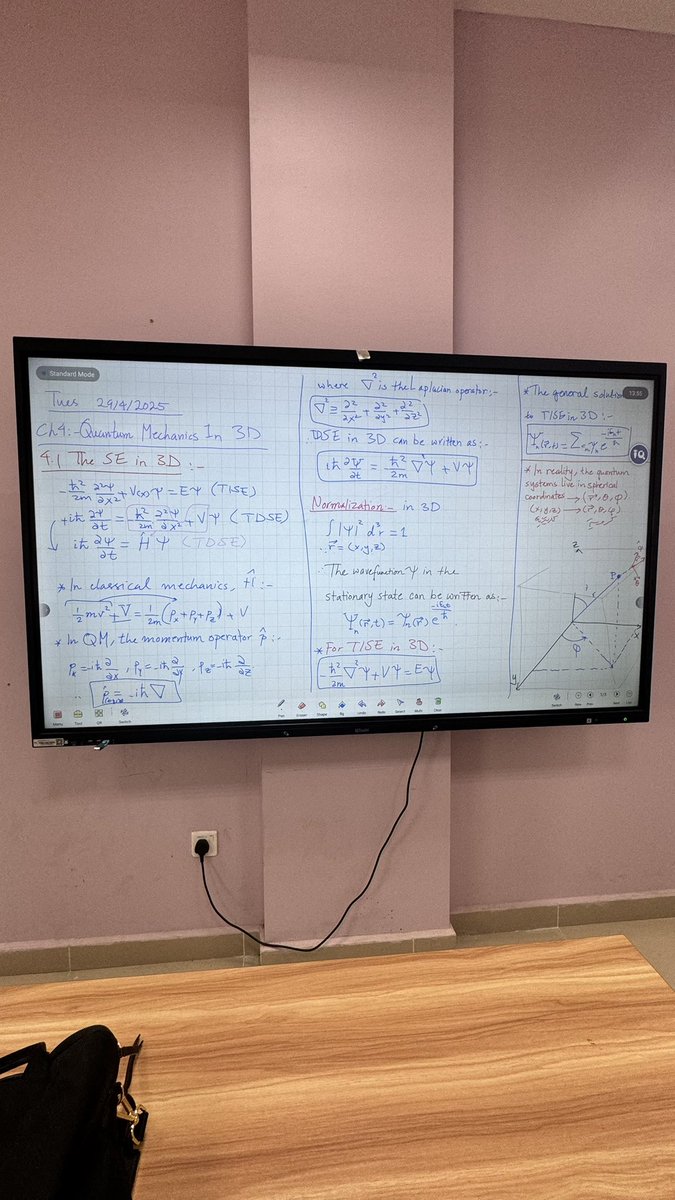 Standard Mode
Tues 29/4/2025
Ch4:- Quantum Mechanics In 3D
4.1 The SE in 3D:-
-ħ²/2m ∂²Ψ/∂x² + V(x)Ψ = EΨ (TISE)
+iħ ∂Ψ/∂t = -ħ²/2m ∂²Ψ/∂x² + VΨ (TDSE)
iħ ∂Ψ/∂t = ĤΨ (TDSE)
* In classical mechanics, Ĥ :-
½mv² + V = 1/2m (Px + Py + Pz) + V
* In QM, the momentum operator p̂ :-
Px = -iħ ∂/∂x , Py = -iħ ∂/∂y , Pz = -iħ ∂/∂z
p̂ = -iħ ∇
where ∇² is the Laplacian operator:-
∇² = ∂²/∂x² + ∂²/∂y² + ∂²/∂z²
TDSE in 3D can be written as:-
iħ ∂Ψ/∂t = -ħ²/2m ∇²Ψ + VΨ
Normalization- in 3D
∫|Ψ|² d³r = 1
r⃗ = (x,y,z)
The wavefunction Ψ in the
stationary state can be written as:-
Ψn(r⃗,t) = Ψn(r⃗) e^-iEnt/ħ
* For TISE in 3D:-
-ħ²/2m ∇²Ψ + VΨ = EΨ
* The general solution
13:55
to TISE in 3D:-
IQ
* In reality, the quantum
systems live in spherical
coordinates → (r⃗, θ, φ)
(x,y,z) → (r⃗, θ, φ)
z
P
r
x
φ
y
Menu
Tool
QR
Switch
Pen
Eraser
Shape
Bg
Undo
Redo
Select
Multi
Clear
Switch
New
Prev
3/3
Next